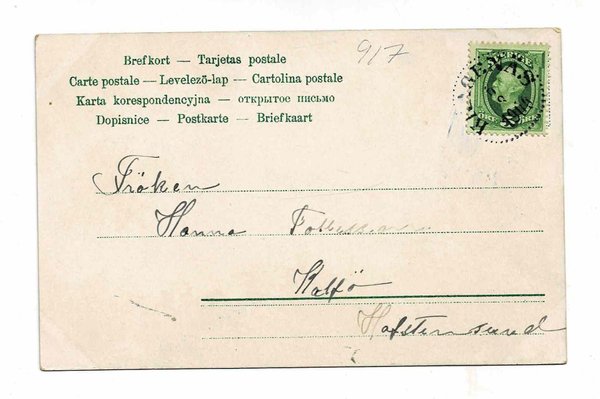 Brefkort — Tarjetas postale
917
Carte postale — Levelezō-lap — Cartolina postale
Karta korespondencyjna — открытое письмо
Dopisnice — Postkarte — Briefkaart
SVERIGE
FEM ÖRE
Fröken
Hanna
Kalfö
Hafstensund